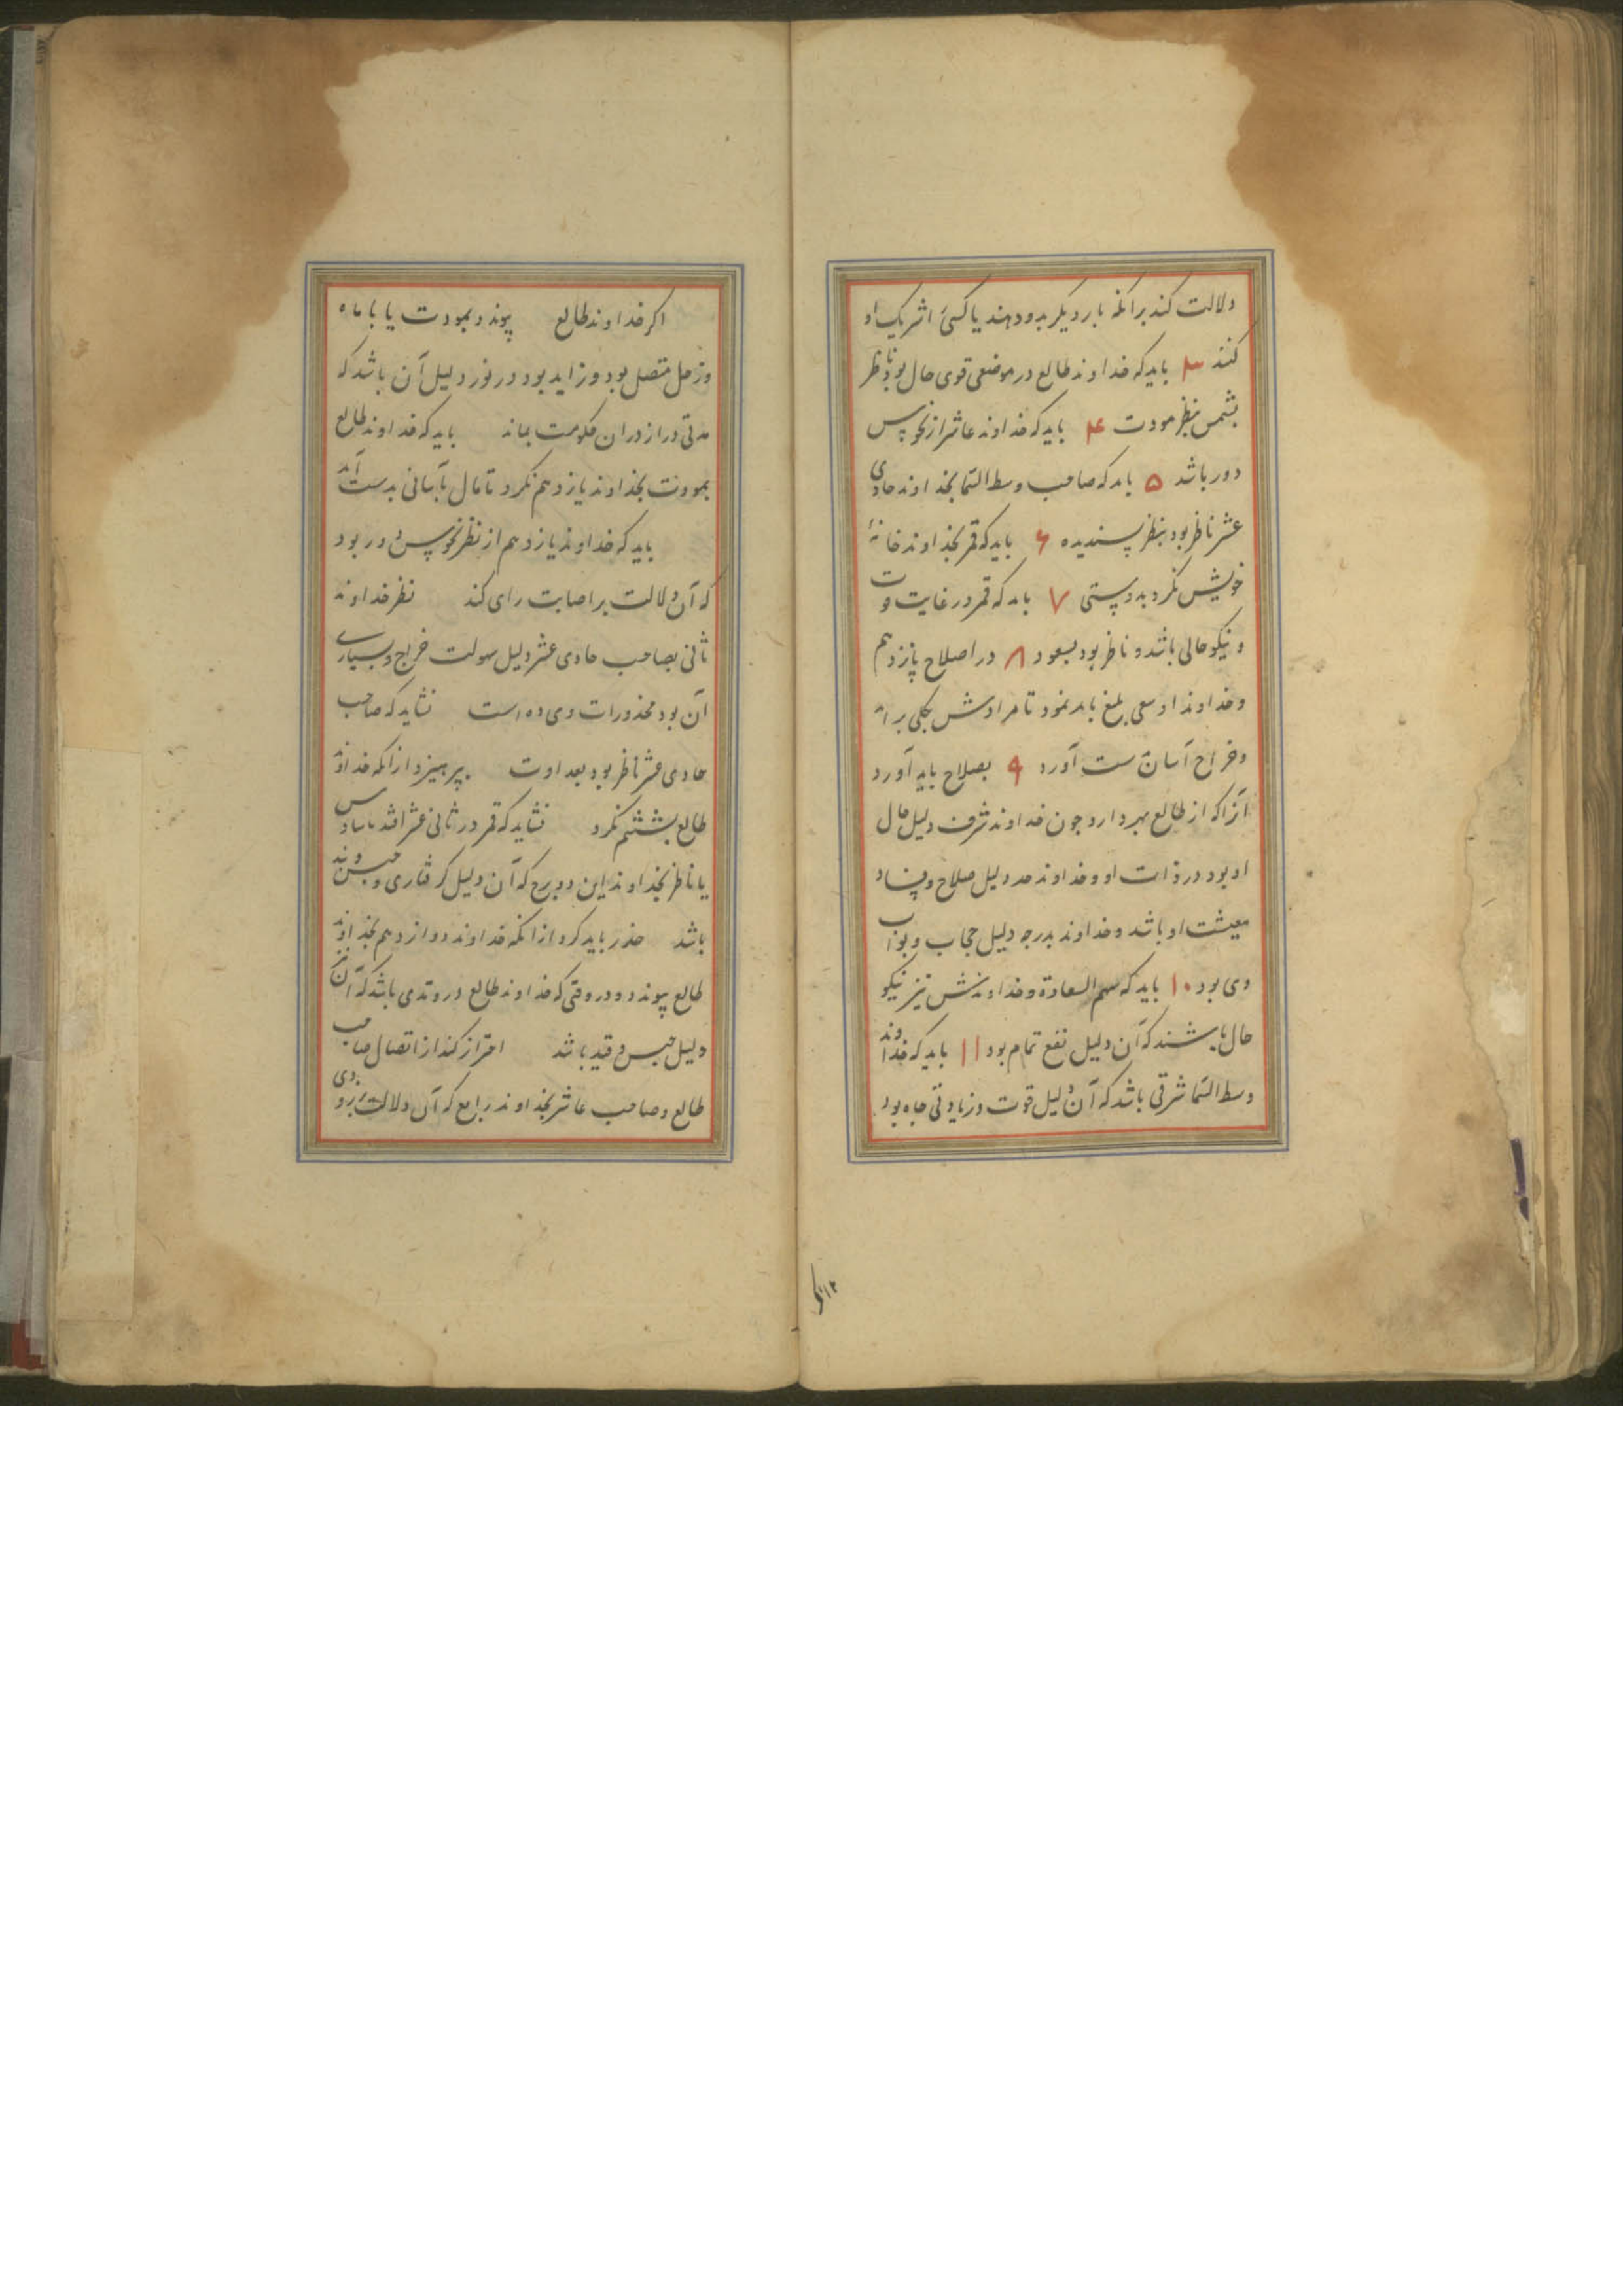 دلالت کند برانکه بار دیکر بدو دهند یا کسی را شریک او
کنند ۳ باید که خداوند طالع در موضعی قوی حال بود و ناظر
بشمس بنظر مودت ۴ باید که خداوند عاشر از نحوس
دور باشد ۵ باید که صاحب وسط السما بخداوند حادی
عشر ناظر بود بنظر پسندیده ۶ باید که قمر بخداوند خانهٔ
خویش نکرد بدوستی ۷ باید که قمر در غایت قوت
و نیکو حالی باشد و ناظر بود بسعود ۸ در اصلاح یازدهم
و خداوند او سعی بلیغ باید نمود تا مرادش بکلی براید
و خراج آسان بدست آورد ۹ بصلاح باید آورد
آنرا که از طالع بهره دارد چون خداوند شرف دلیل حال
او بود در ذات او و خداوند حد دلیل صلاح و فساد
معیشت او باشد و خداوند بدرجه دلیل حجاب و بواب
وی بود ۱۰ باید که سهم السعادة و خداوندش نیز نیکو
حال باشند که آن دلیل نفع تمام بود ۱۱ باید که خداوند
وسط السما شرقی باشد که آن دلیل قوت و زیادتی جاه بود
۱۲ اکر
اکر خداوند طالع پیوندد بمودت یا با ماه
وزحل متصل بود و زاید بود در نور دلیل آن باشد که
مدتی دراز دران حکومت بماند باید که خداوند طالع
بمودت بخداوند یازدهم نکرد تا مال بآسانی بدست آید
باید که خداوند یازدهم از نظر نحوس دور بود
که آن دلالت بر اصابت رای کند نظر خداوند
ثانی بصاحب حادی عشر دلیل سهولت خراج و بسیاری
آن بود محذورات وی ده است نشاید که صاحب
حادی عشر ناظر بود بعداوت بپرهیزد ازانکه خداوند
طالع بششم نکرد نشاید که قمر در ثانی عشر افتد یا سادس
یا ناظر بخداوند این دو برج که آن دلیل کرفتاری و حبس و بند
باشد حذر باید کرد ازانکه خداوند دوازدهم بخداوند
طالع پیوندد و در وقتی که خداوند طالع در وتدی باشد که آن نیز
دلیل حبس و قید باشد احتراز کند از اتصال صاحب
طالع و صاحب عاشر بخداوند رابع که آن دلالت بر زودی